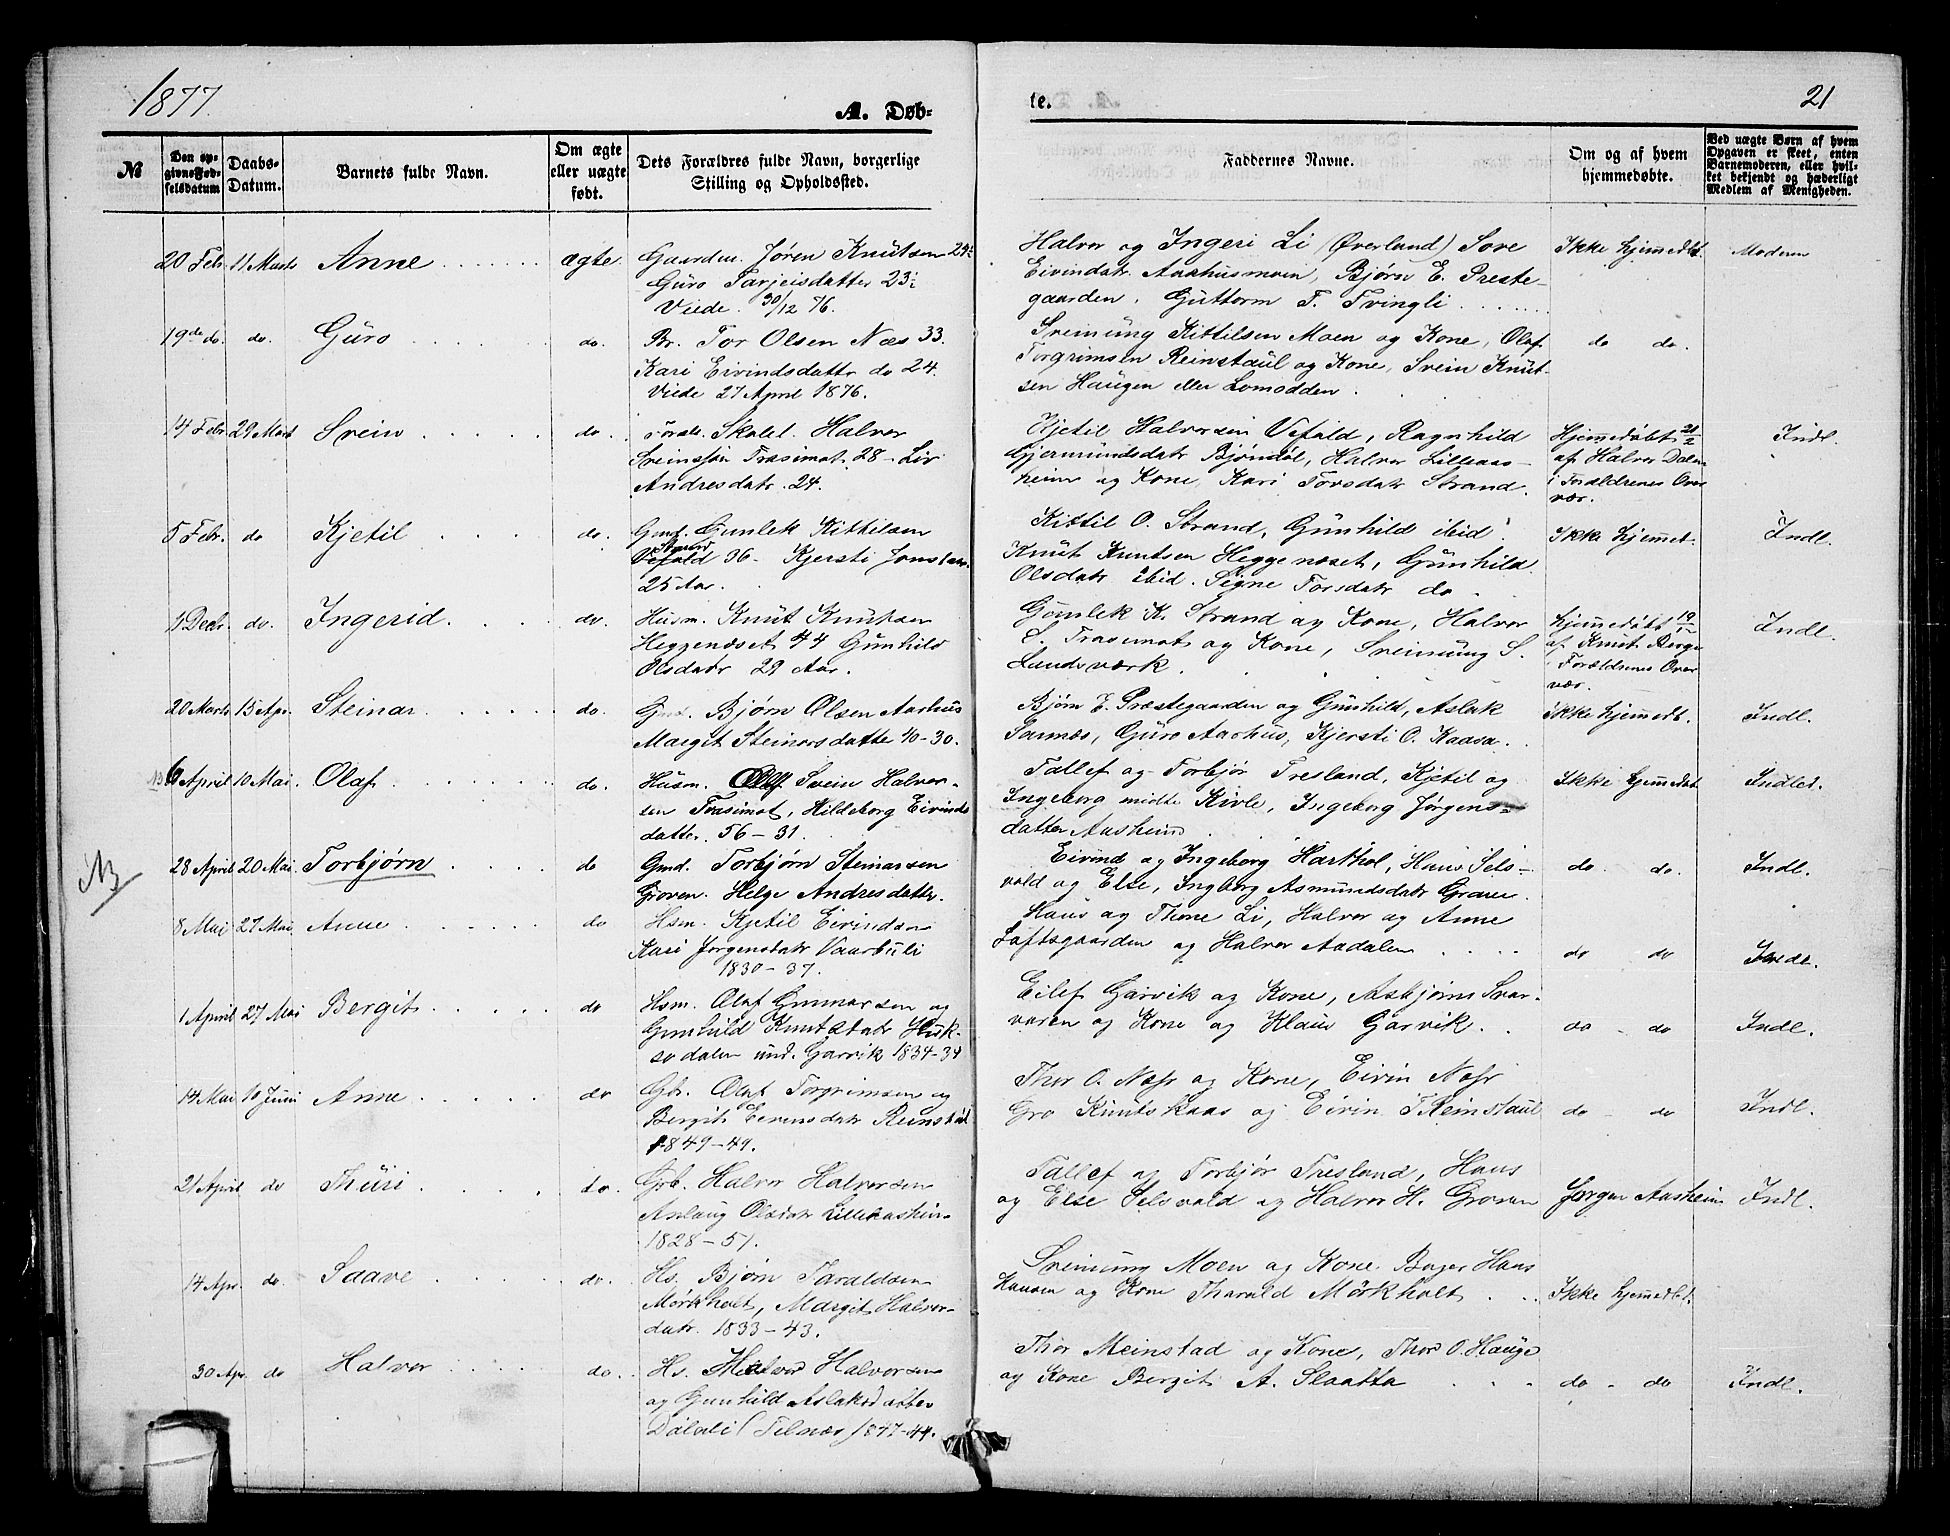 1877.
A. Døb-
te.
21
№
Den op-
givne Fød-
selsdatum
Daabs-
Datum.
Barnets fulde Navn.
Om ægte
eller uægte
født.
Dets Forældres fulde Navn, borgerlige
Stilling og Opholdssted.
Faddernes Navne.
Om og af hvem
hjemmedøbte.
Ved uægte Børn af hvem
Opgaven er skeet, enten
Barnemoderen, eller hvil-
ket bekjendt og hæderligt
Medlem af Menigheden.
20 Febr. 11 Marts Anne ægte. Gaardm. Jøren Knutsen 24
Guro Tarjeisdatter 23
Viede 30/12 76.
Halvor og Ingeri Li (Øverland) Sove
Eivindsdtr. Aashusmoen, Bjørn E. Preste-
gaarden, Guttorm T. Tvingli
Ikke hjemmedbt. Moderen
19de do. do. Guro do. Br. Tor Olsen Næs 33.
Kari Eivindsdattr do 24.
Viede 27 April 1876.
Sveinung Kittilsen Moen og Kone, Olaf
Torgrimsen Reinstaul og Kone, Svein Knut-
sen Haugen eller Lomodden.
do do.
14 Febr. 29 Mart Svein do. Skolel. Halvor
Sveinsson Trasimot 28 - Liv
Andresdatr. 24.
Kjetil Halvorsen Vefald, Ragnhild
Gjermundsdatr Bjöndöl, Halvor Lilleaas-
heim og Kone, Kari Torsdatr Strand.
Hjemmedøbt 21/2
af Halvor Dalen
i Forældrenes Over
vær.
Indl.
5 Febr. do Kjetil do. Gmd. Gunlek Kittilsen
Vefald 36 - Kjersti Jonsdatr.
25 Aar.
Kittil O. Strand, Gunhild ibid.
Knut Knutsen Heggenæset, Gunhild
Olsdatr ibid. Signe Torsdatr do
Ikke hjemmet. Indl.
1 Decbr. do. Ingerid. do. Husm. Knut Knutsen
Heggenæset 44 Gunhild
Olsdatr 29 Aar.
Gunlek K. Strand og Kone, Halvor
S. Trasimot og Kone, Sveinung S.
Landsværk.
Hjemmedøbt
af Knut Berge
i Forældrenes Over
vær.
Indl.
20 Marts 15 Apr. Steinar. do. Gmd. Bjørn Olsen Aashus
Margit Steinarsdatter 40-30.
Bjørn E. Præstegaarden og Gunhild, Aslak
Sarnæs, Guro Aashus, Kjersti O. Kaasa.
Ikke hjemmedt. Indl.
6 April 10 Mai. Olaf. do. Husm. Svein Halvor-
sen Trasimot, Hildeborg Eivinds
dattr. 56 - 31.
Tallef og Torbjør Tresland, Kjetil og
Ingeborg midtre Kivle, Ingeborg Jørgens-
datter Aasheim
Ikke hjemmedbt Indled.
NB
28 April 20 Mai. Torbjørn do Gmd. Torbjørn Steinarsen
Groven. Helge Andresdatter.
Eivind og Ingeborg Harthol, Hans Sels-
vold og Else, Ingborg Asmundsdatr Graver.
do. do. Indl.
8 Mai 27 Mai. Anne do Hsm. Kjetil Eivindsen
Kari Jørgensdatr Vaarbuli
1830-37.
Hans og Thone Li, Halvor og Anne
Loftsgaarden og Halvor Aadalen
do do Indl.
1 April 27 Mai Bergit do Hsm. Olaf Gunnarsen og
Gunhild Knutsdatr Huk-
sodalen und. Garvik 1834-34
Eilef Garvik og Kone, Asbjørn Svar-
varen og Kone og Klaus Garvik.
do - do Indl.
14 Mai 10 Juni Anne do Gbr. Olaf Torgrimsen og
Bergit Eivinsdatr Reinstaul
1849-49.
Thor O. Næss og Kone, Eivin Næss
Gro Knutskaas og Eivin T Reinstaul
do - do Indl.
21 April do Thuri do. Grb. Halvor Halvorsen
Aslaug Olsdatr Lilleaasheim
1828-51.
Tallef og Torbjør Tresland, Hans
og Else Selsvold og Halvor H. Groven
Jørgen Aasheim Indl.
14 Apr. do. Saave do. Hs. Bjørn Taraldsen
Mørkholt, Margit Halvor-
datr. 1833-43.
Sveinung Moen og Kone. Bager Hans
Hansen og Kone Tharald Mörkholt
Ikke hjemmedbt.
30 Apr. do Halvor do. Hs. Halvor Halvorsen
og Gunhild Aslaksdatter
Dalali (Telnæs) 1847-44.
Thor Meinstad og Kone, Thor O. Hauge
og Kone Bergit A. Slaatta
do - do Indl.